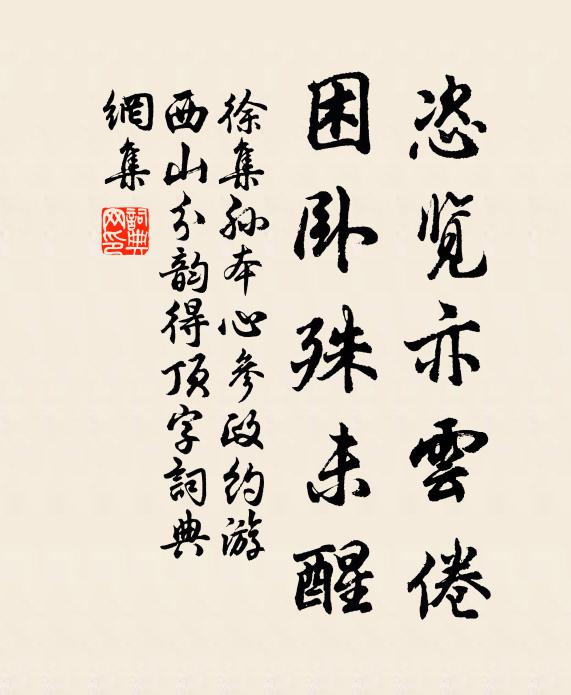 恣览亦雲倦
困卧殊未醒
徐集孙本心參政约游
西山分韵得顶字詞典
網集
詞典网印